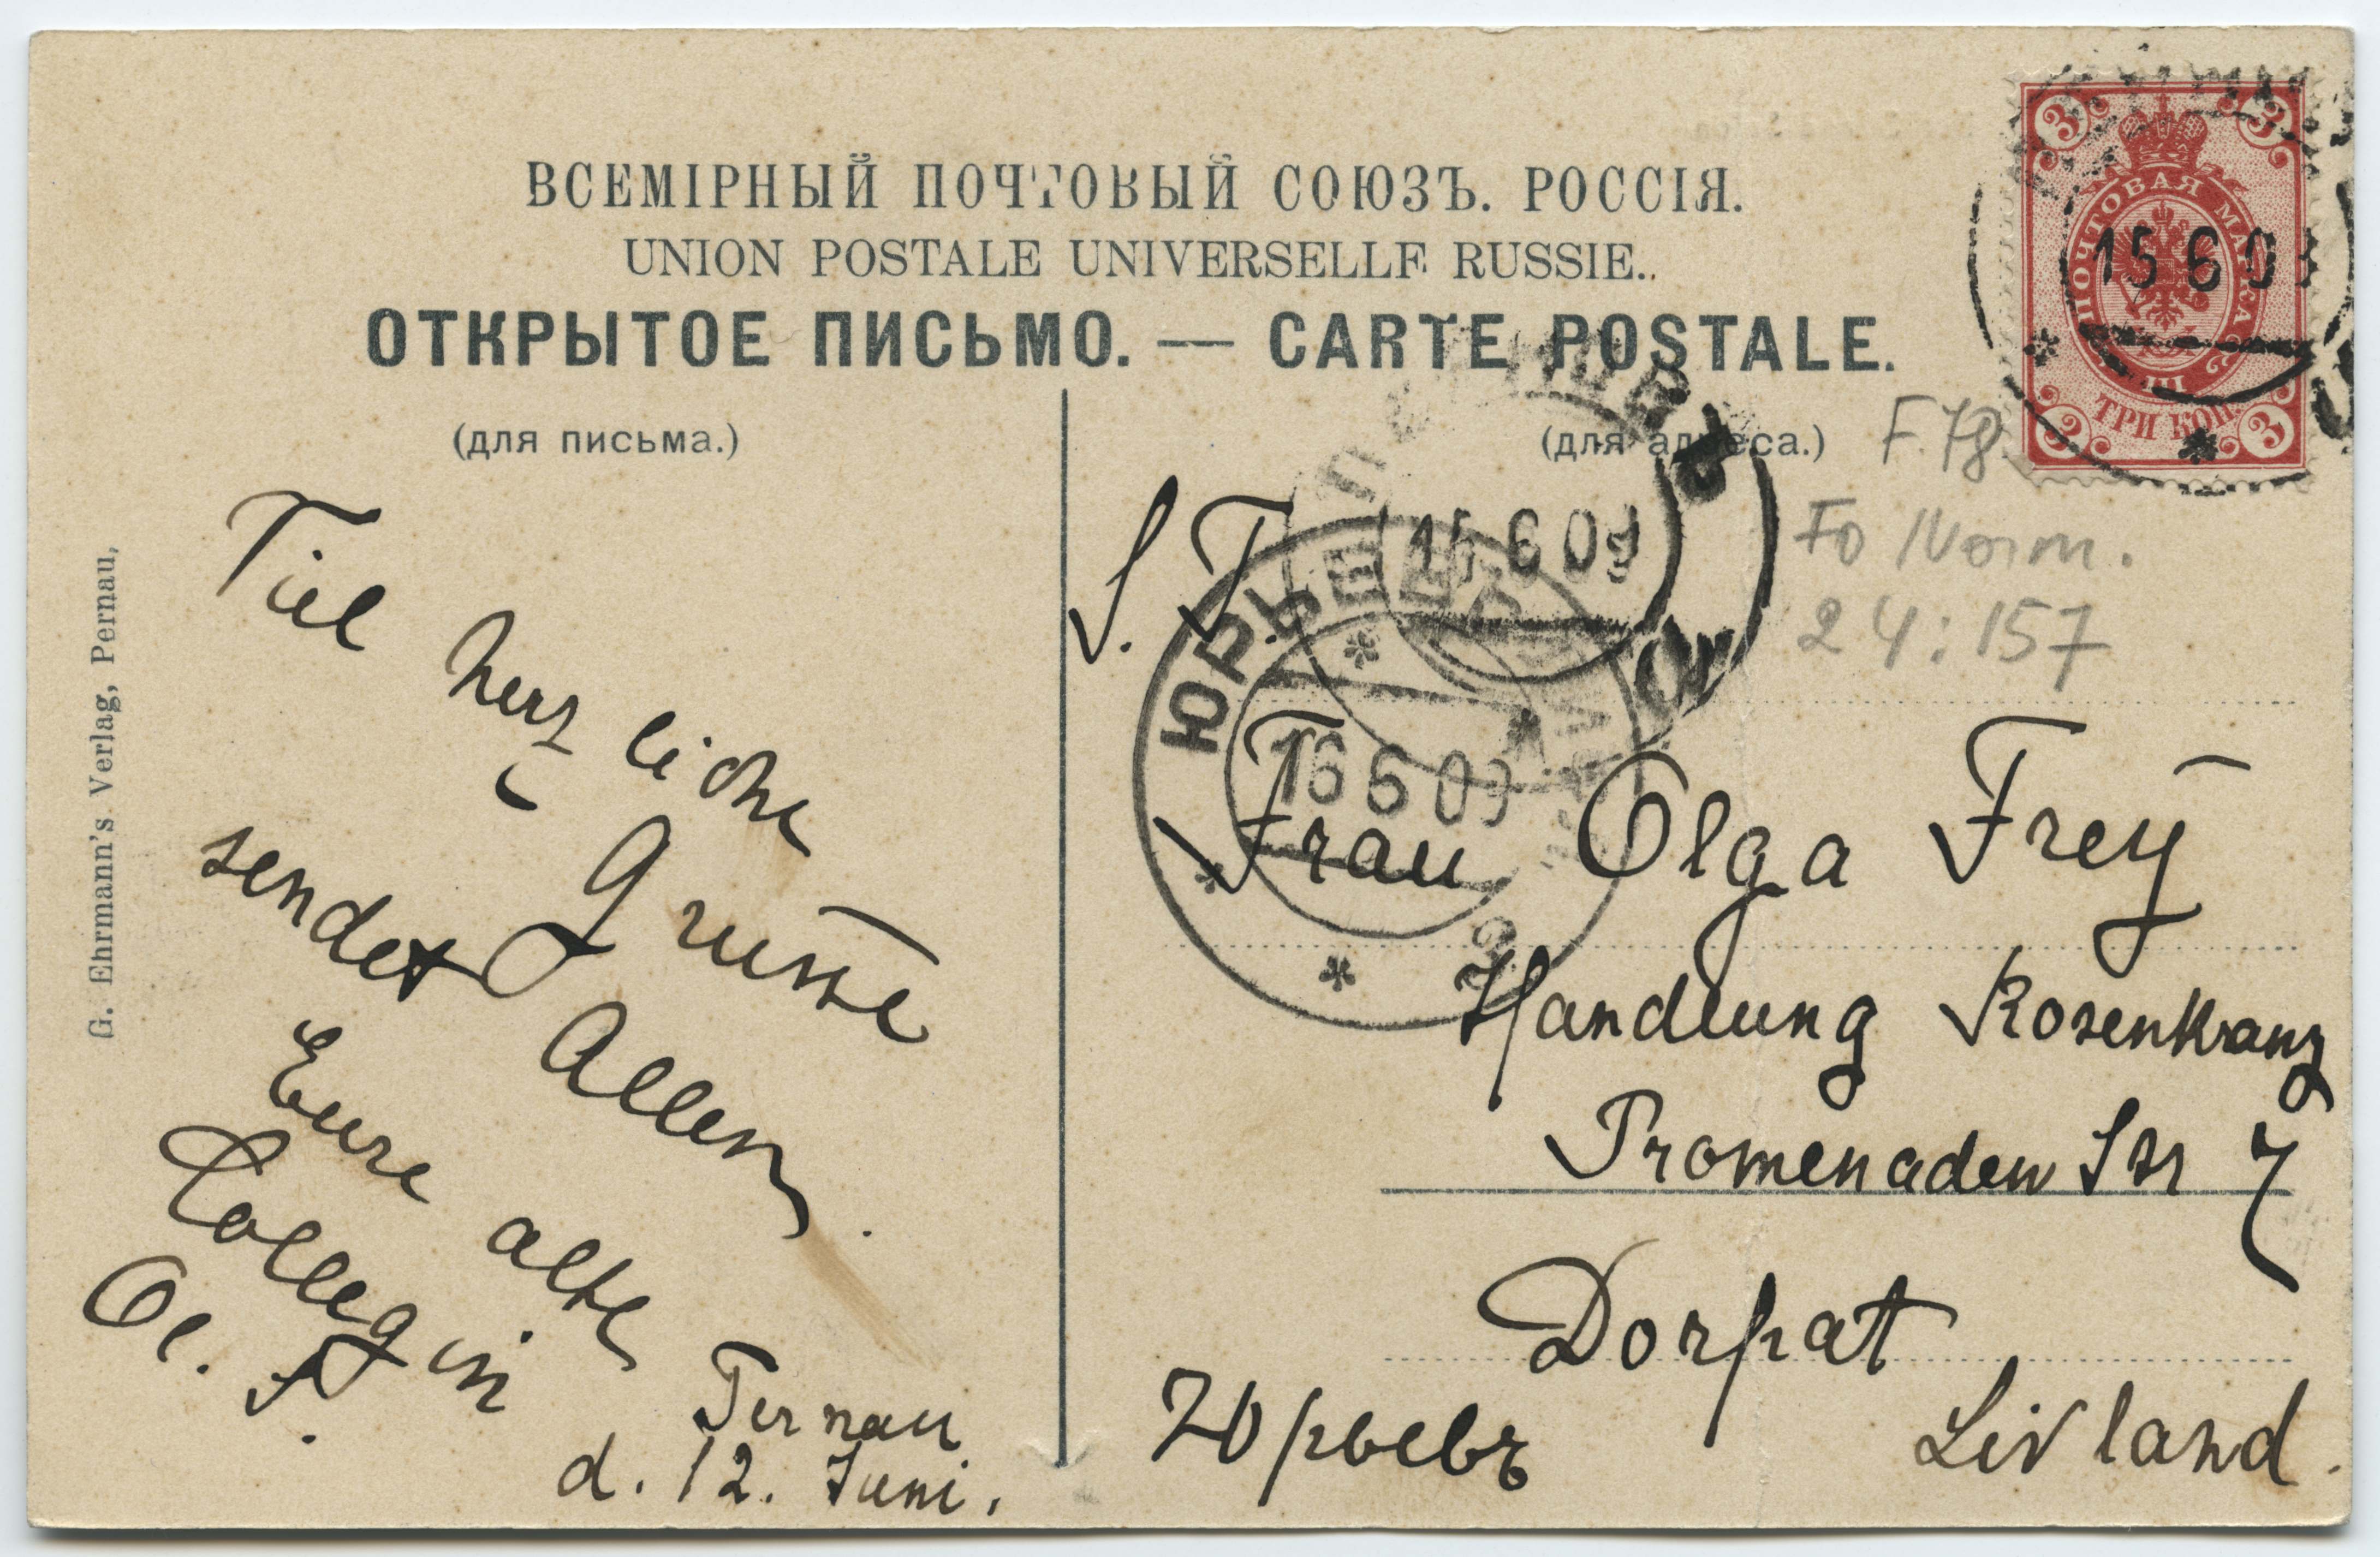 ВСЕМІРНЫЙ ПОЧТОВЫЙ СОЮЗЪ. РОССІЯ.
UNION POSTALE UNIVERSELLE RUSSIE..
ОТКРЫТОЕ ПИСЬМО. — CARTE POSTALE.
(для письма.)
(для адреса.)
G. Ehrmann's Verlag, Pernau,
Viel herzliche
Grüsse
sendet Allen
Eure alte
Collegin
Ol. F.
Pernau
d. 12. Juni.
S. T.
Frau Olga Frey
Handlung Rosenkranz
Promenaden Str 7
Dorpat
Юрьевъ
Livland.
F. 78
Fo Norm.
24:157
ПОЧТОВАЯ МАРКА
ТРИ КОП.
3
3
3
3
15 6 03
15 6 03
ЮРЬЕВЪ
16 6 03